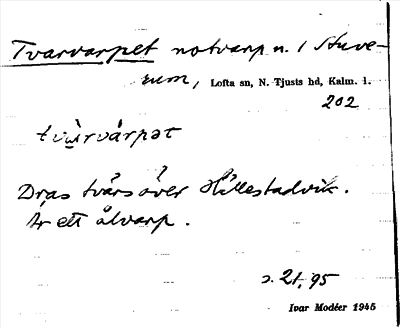 Tvarvarpet notvarp n. i Stuve-
rum, Lofta sn, N. Tjusts hd, Kalm. l.
202
tvàrvárpət
Dras tvärs över Hällestadvik.
Är ett ålvarp.
s. 21, 95
Ivar Modéer 1945